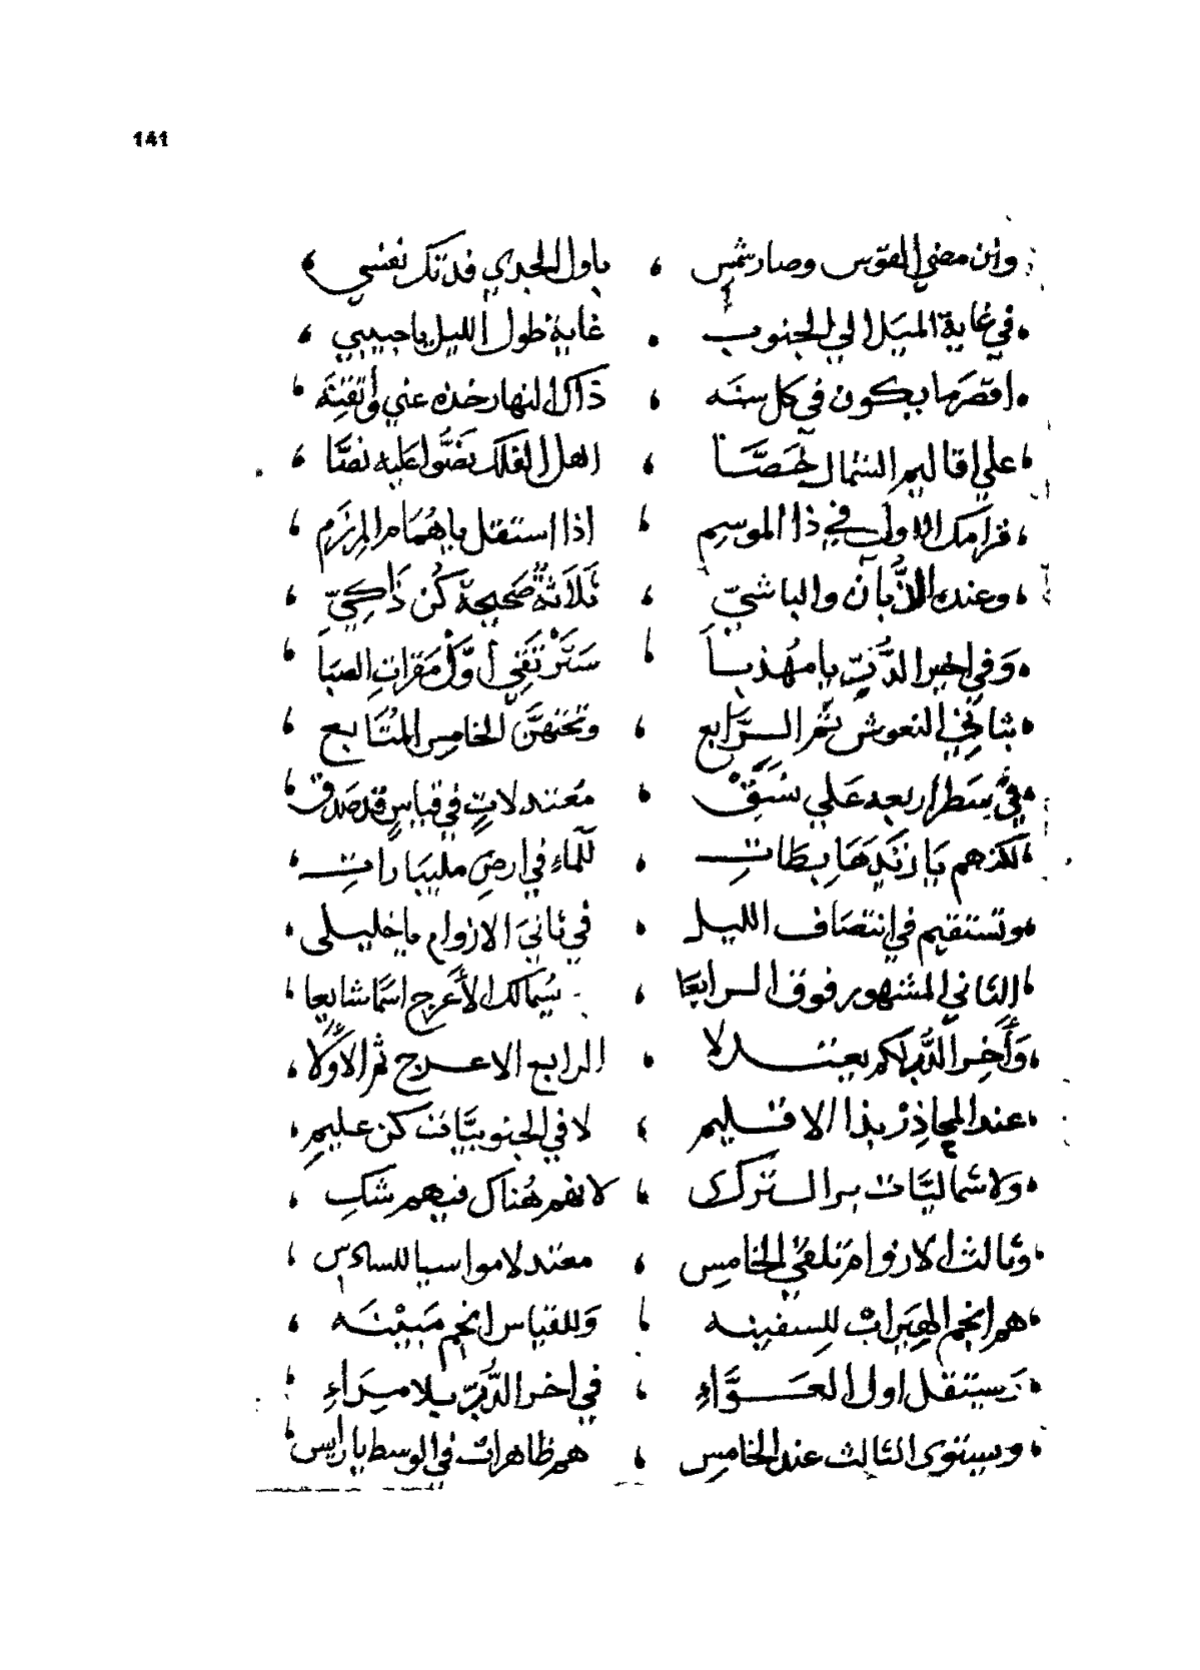 141
وان مضي القوس وصار شمس ، باول الجدي فدتك نفسي
في غاية الميل الي الجنوب . غاية طول الليل يا حبيبي ،
اقصر ما يكون في كل سنه ، ذاك النهار خذه عني وأتقنه
علي اقاليم الشمال خصّا ، اهل الفلك نصّوا عليه نصّا ،
الاول في ذا الموسم ، اذا استقل يا همام المرزم
وعنده الدبان والباشيّ ، ثلاثة صحيحة كن ذاكيّ ،
وفي اخير الدّبّ يا مهذبا ، سترتقي أوّل مقرات الصبا
ثاني النعوش ثمر الرّابع ، وتحتهنّ الخامس المتابع
في سطر اربعه علي سبق ، معتدلات في قياس قد صدق
بطات ، للماء في ارض مليبارات
وتستقيم في انتصاف الليل ، في ثاني الازوام يا خليلي ،
الثاني المشهور فوق الرابعا ، سماك الأعرج اسما شايعا
وأخر الدّب لكم يعتدلا ، الرابع الاعرج ثم الاوّلا ،
عند المحاذر بذا الاقليم ؛ لا في الجنوبيّات كن عليم ،
ولا شماليّات بر الترك ، لانهم هناك فيهم شك ،
وثالث الازوام تلقي الخامس ، معتدلا مواسيا للسادس
هم انجم الهيراب للسفينه ، وللقياس انجم مبينه ،
سيتقل اول العوّاء ، في اخر الدّبّ بلا مراء
وسيتوي الثالث عند الخامس ، هم ظاهرات في الوسط يا رايس